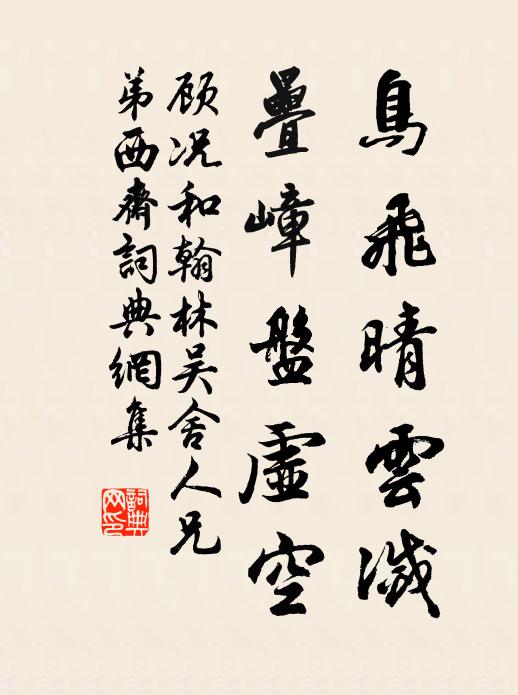 鳥飛晴雲滅
疊嶂盤虛空
顾况和翰林吴舍人兄
弟西齋詞典網集
詞典
网印